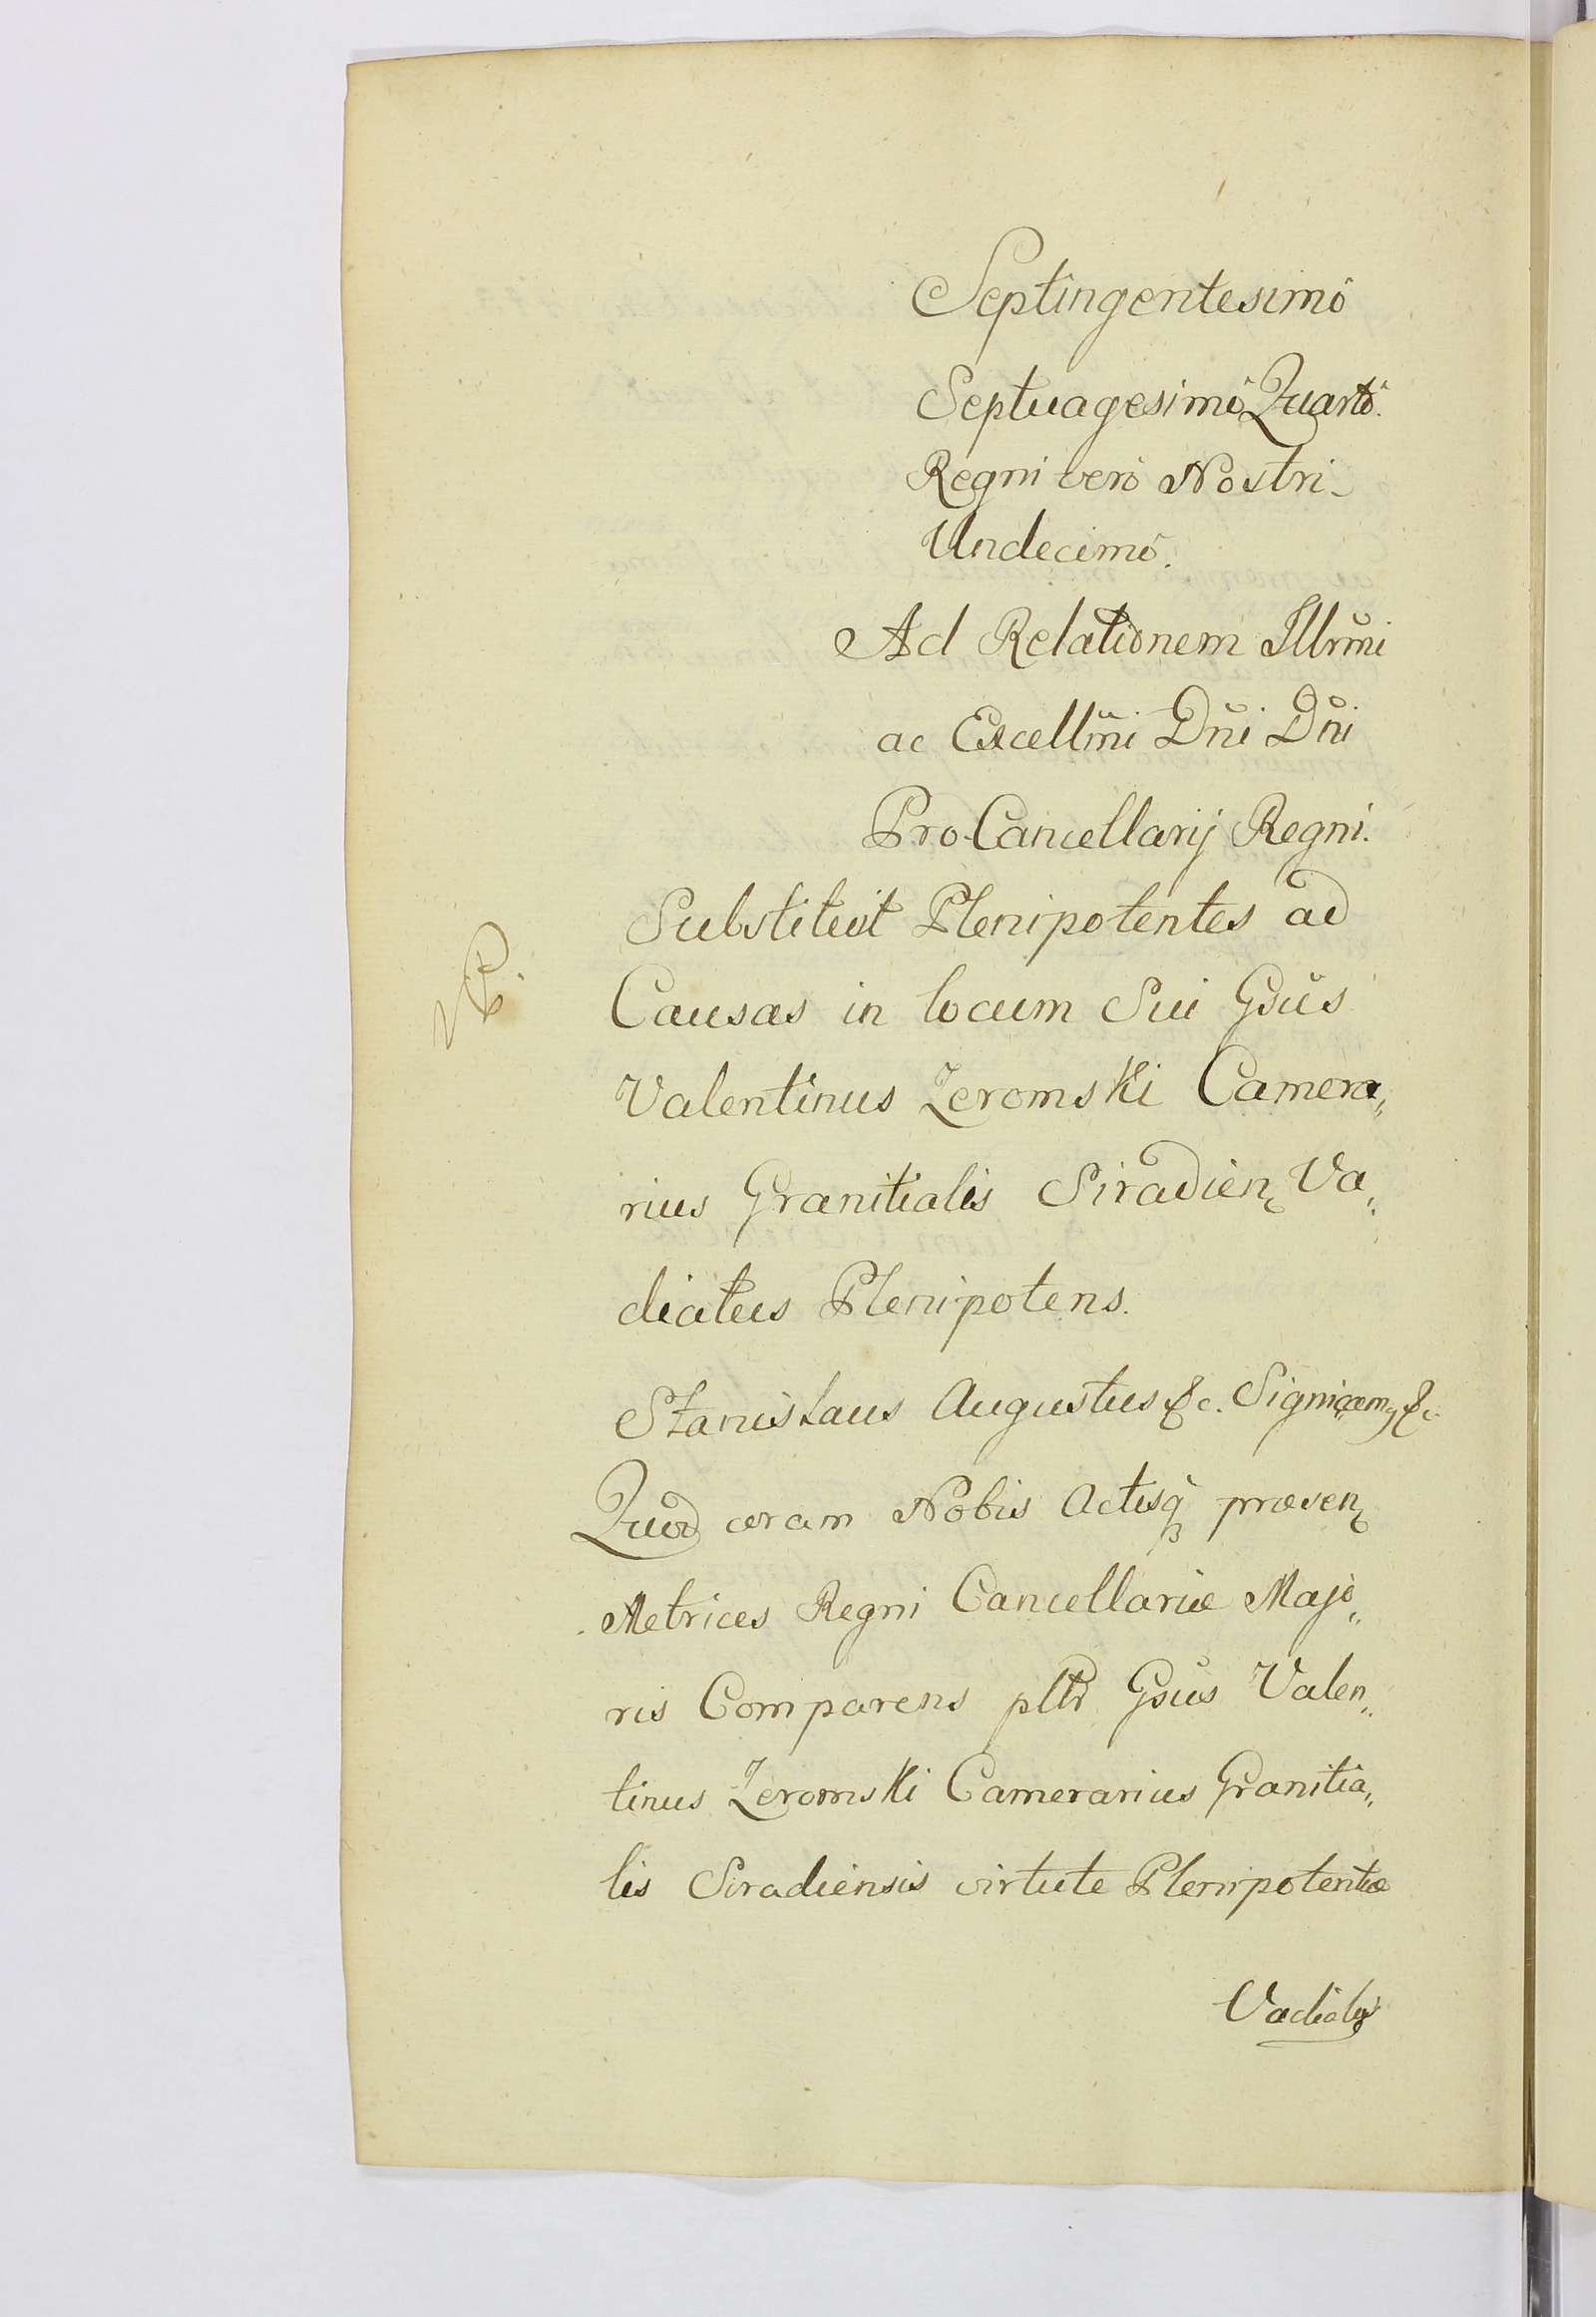 Septingentesimô
Septuagesimô Quartô.
Regni verò Nostri
Undecimô.
Ad Relationem Illrm̃i
ac Excellm̃i Dñi Dñi
Pro-Cancellarij Regni.
Substituit Plenipotentes ad
Causas in locum Sui Gsũs
Valentinus Zeromski Camera„
rius Granitialis Siradien Va„
diatus Plenipotens.
Stanislaus Augustus &c. Signicam, &c.
Quod coram Nobis Actisq præsen
Metrices Regni Cancellariæ Majo„
ris Comparens pltr Gsũs Valen„
tinus Zeromski Camerarius Granitia„
lis Siradiensis virtute Plenipotentiæ